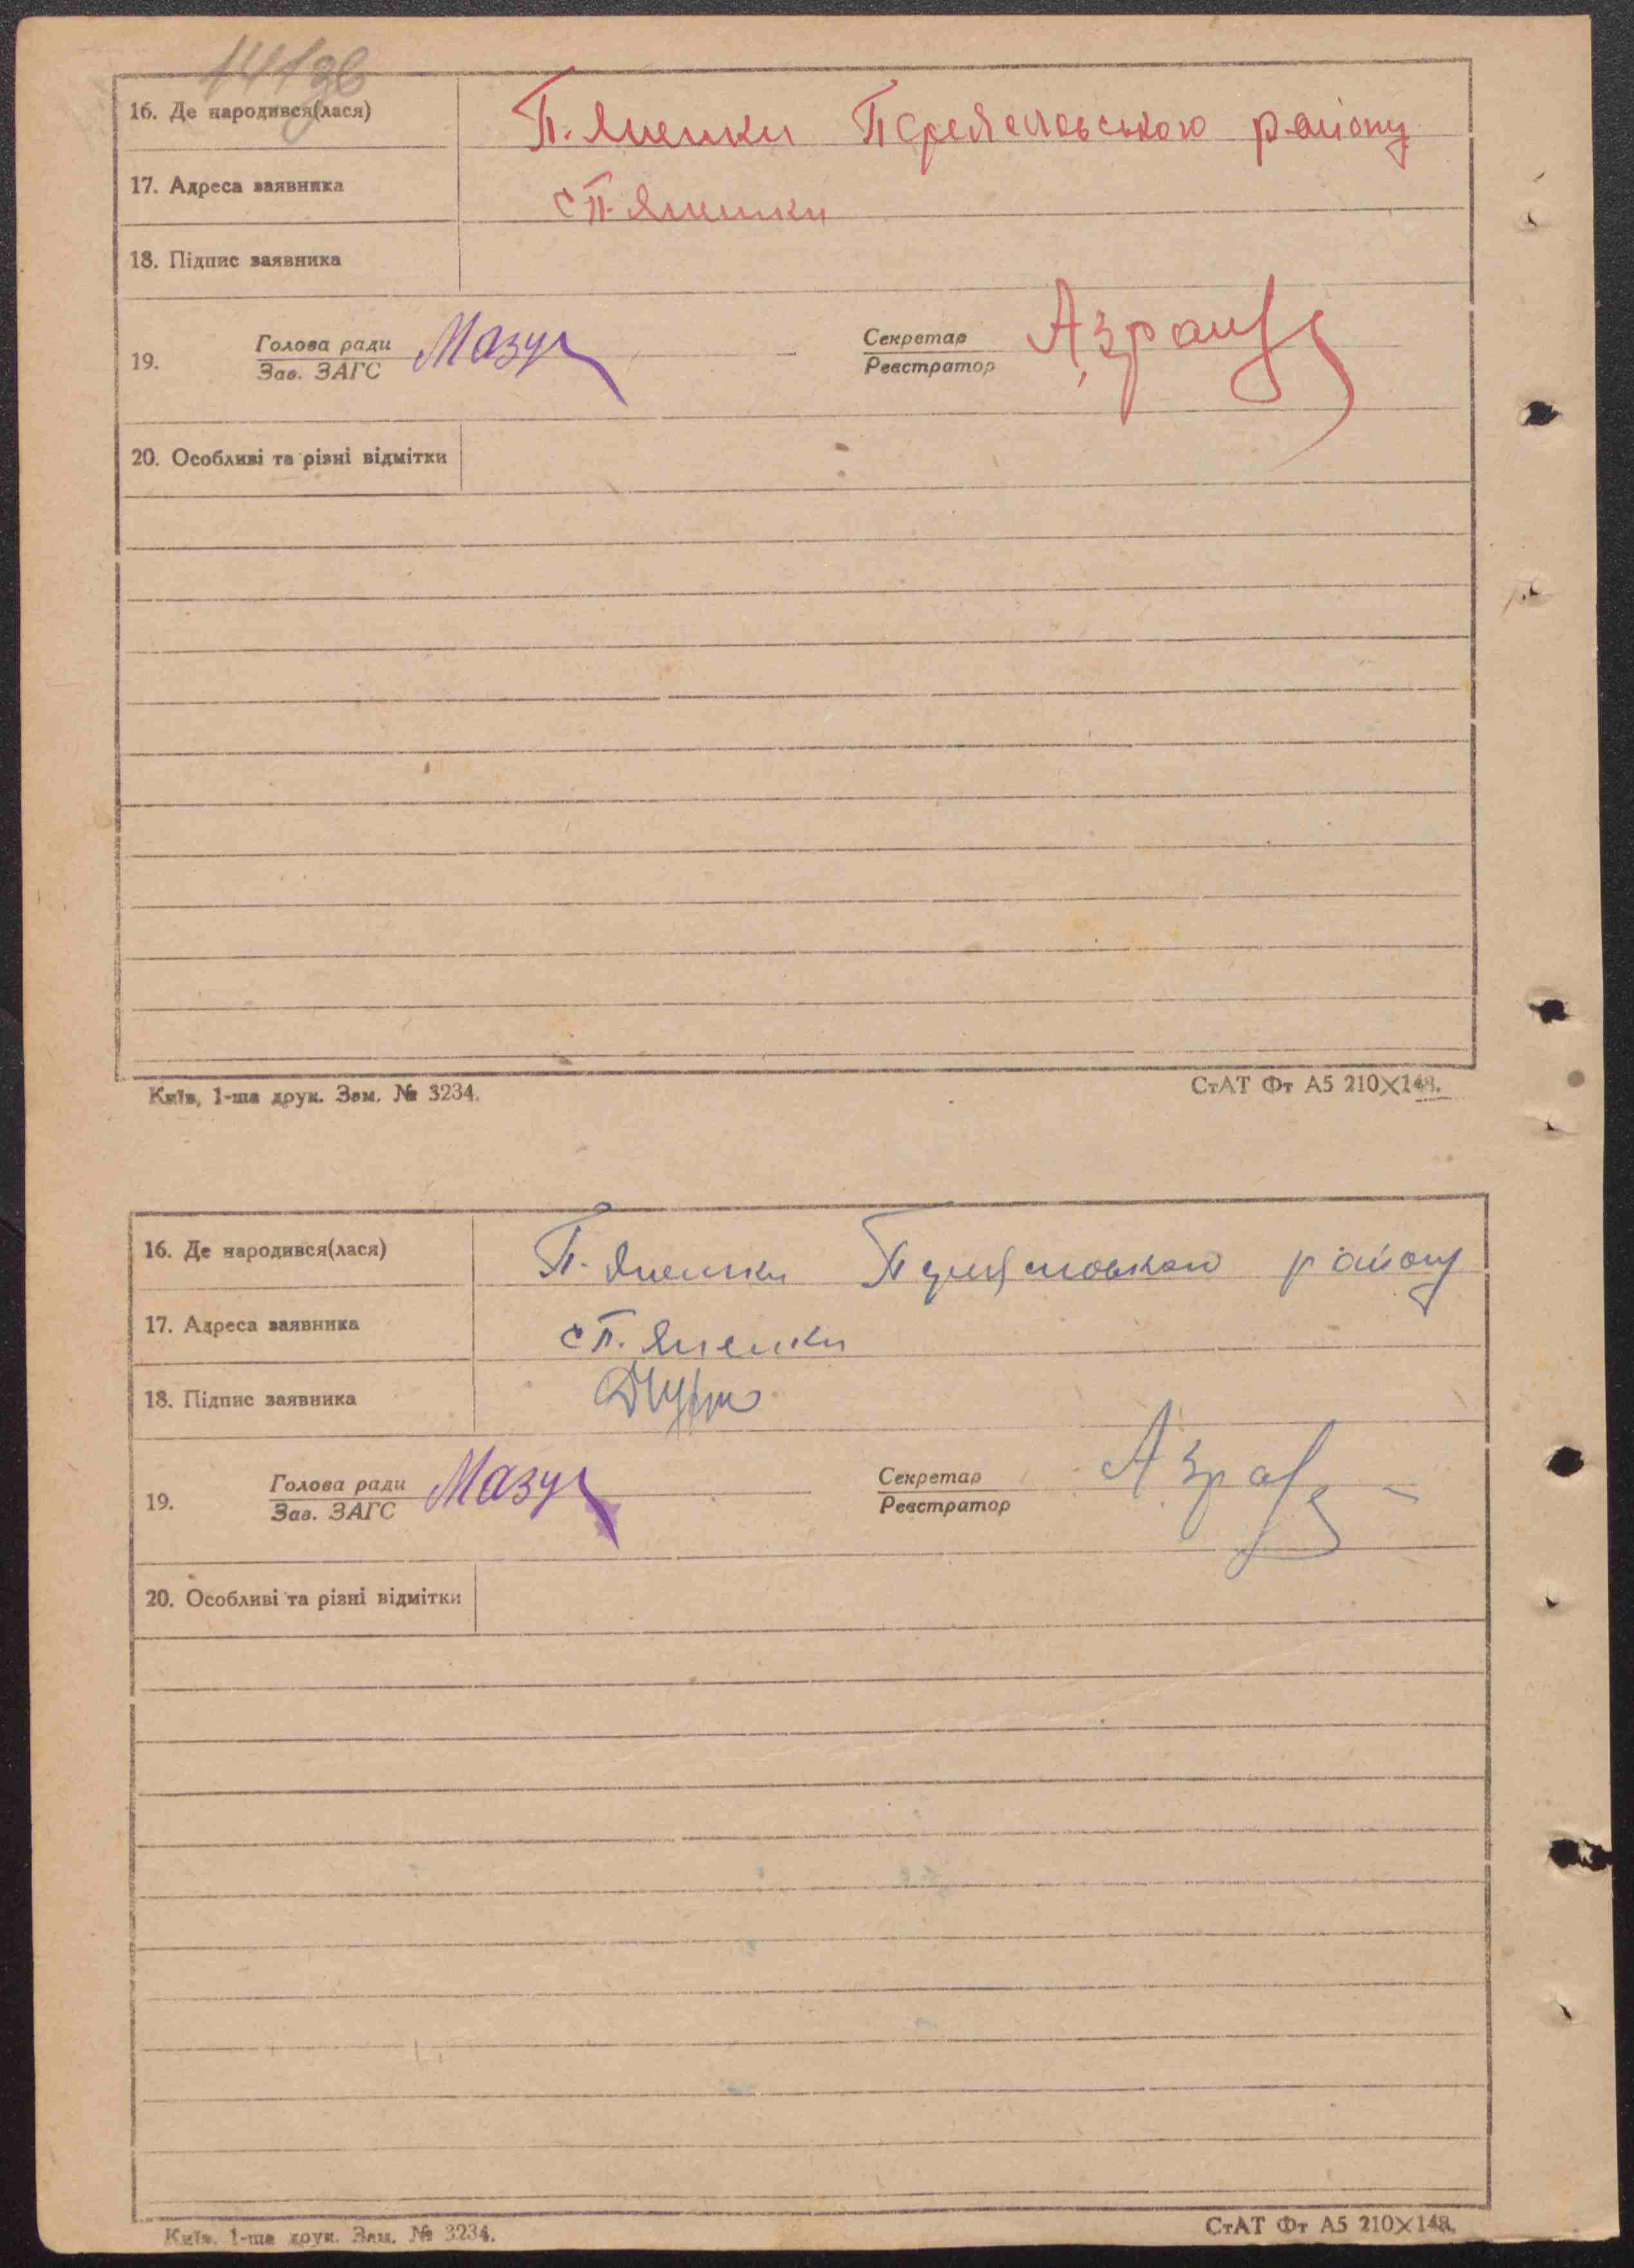 141зв
16. Де народився(лася) П. Яненки Переяславського району
17. Адреса заявника с П. Яненки
18. Підпис заявника
19. Голова ради Мазур Секретар
Зав. ЗАГС Реєстратор
20. Особливі та різні відмітки
Київ, 1-ша друк. Зам. № 3234. СтАТ Фт А5 210×148.
16. Де народився(лася) П. Яненки Переяславського району
17. Адреса заявника с П. Яненки
18. Підпис заявника
19. Голова ради Мазур Секретар
Зав. ЗАГС Реєстратор
20. Особливі та різні відмітки
Київ, 1-ша друк. Зам. № 3234. СтАТ Фт А5 210×148.